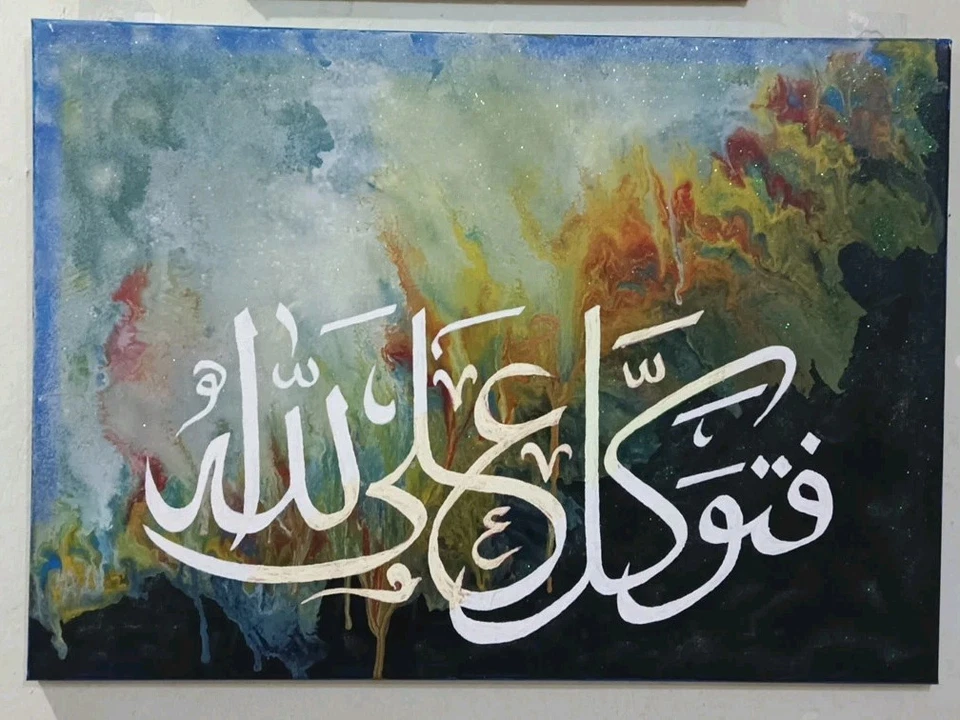 فتوكّل على اللّه